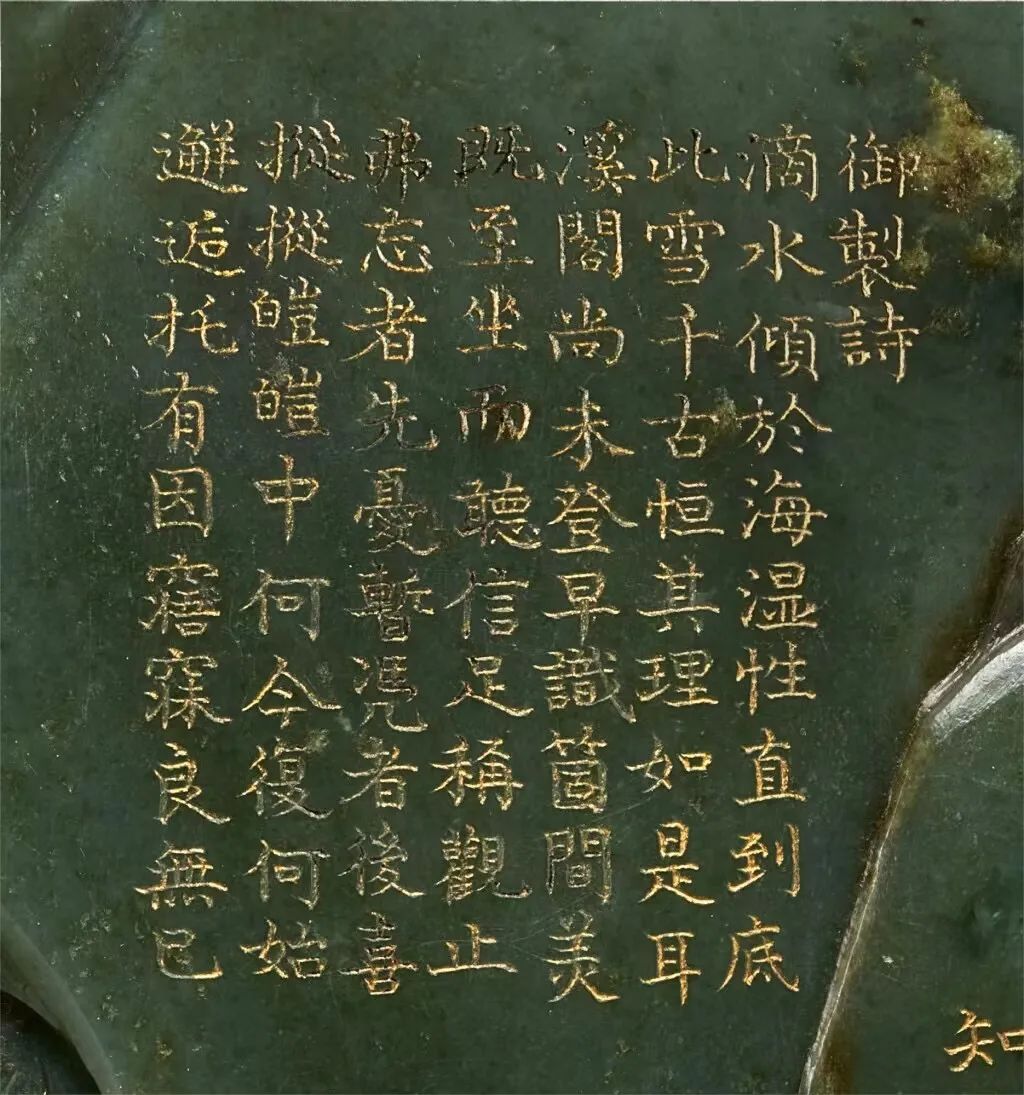 知
御製詩
滴水傾於海湿性直到底
此雪千古恒其理如是耳
溪閣尚未登早識箇間美
既至坐而聽信足稱觀止
弗忘者先憂暫凴者後喜
摐摐皚皚中何今復何始
邂逅托有因寤寐良無已